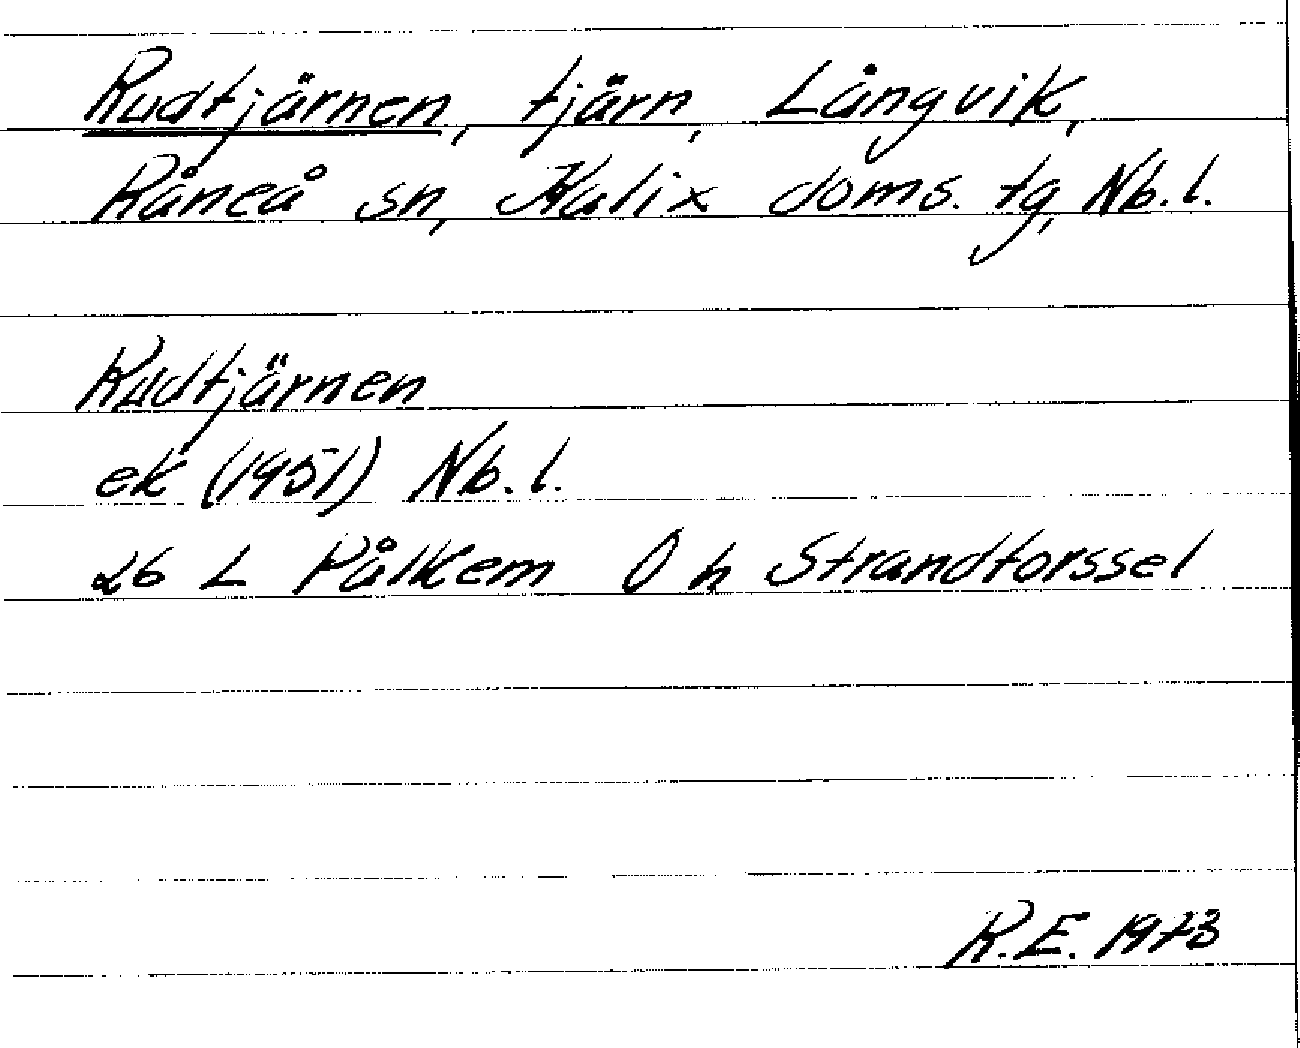 Rudtjärnen, tjärn, Långvik,
Råneå sn, Kalix doms. tg, Nb.l.
Rudtjärnen
ek (1951) Nb.l.
26 L Pålkem O h Strandforssel
R.E. 1973